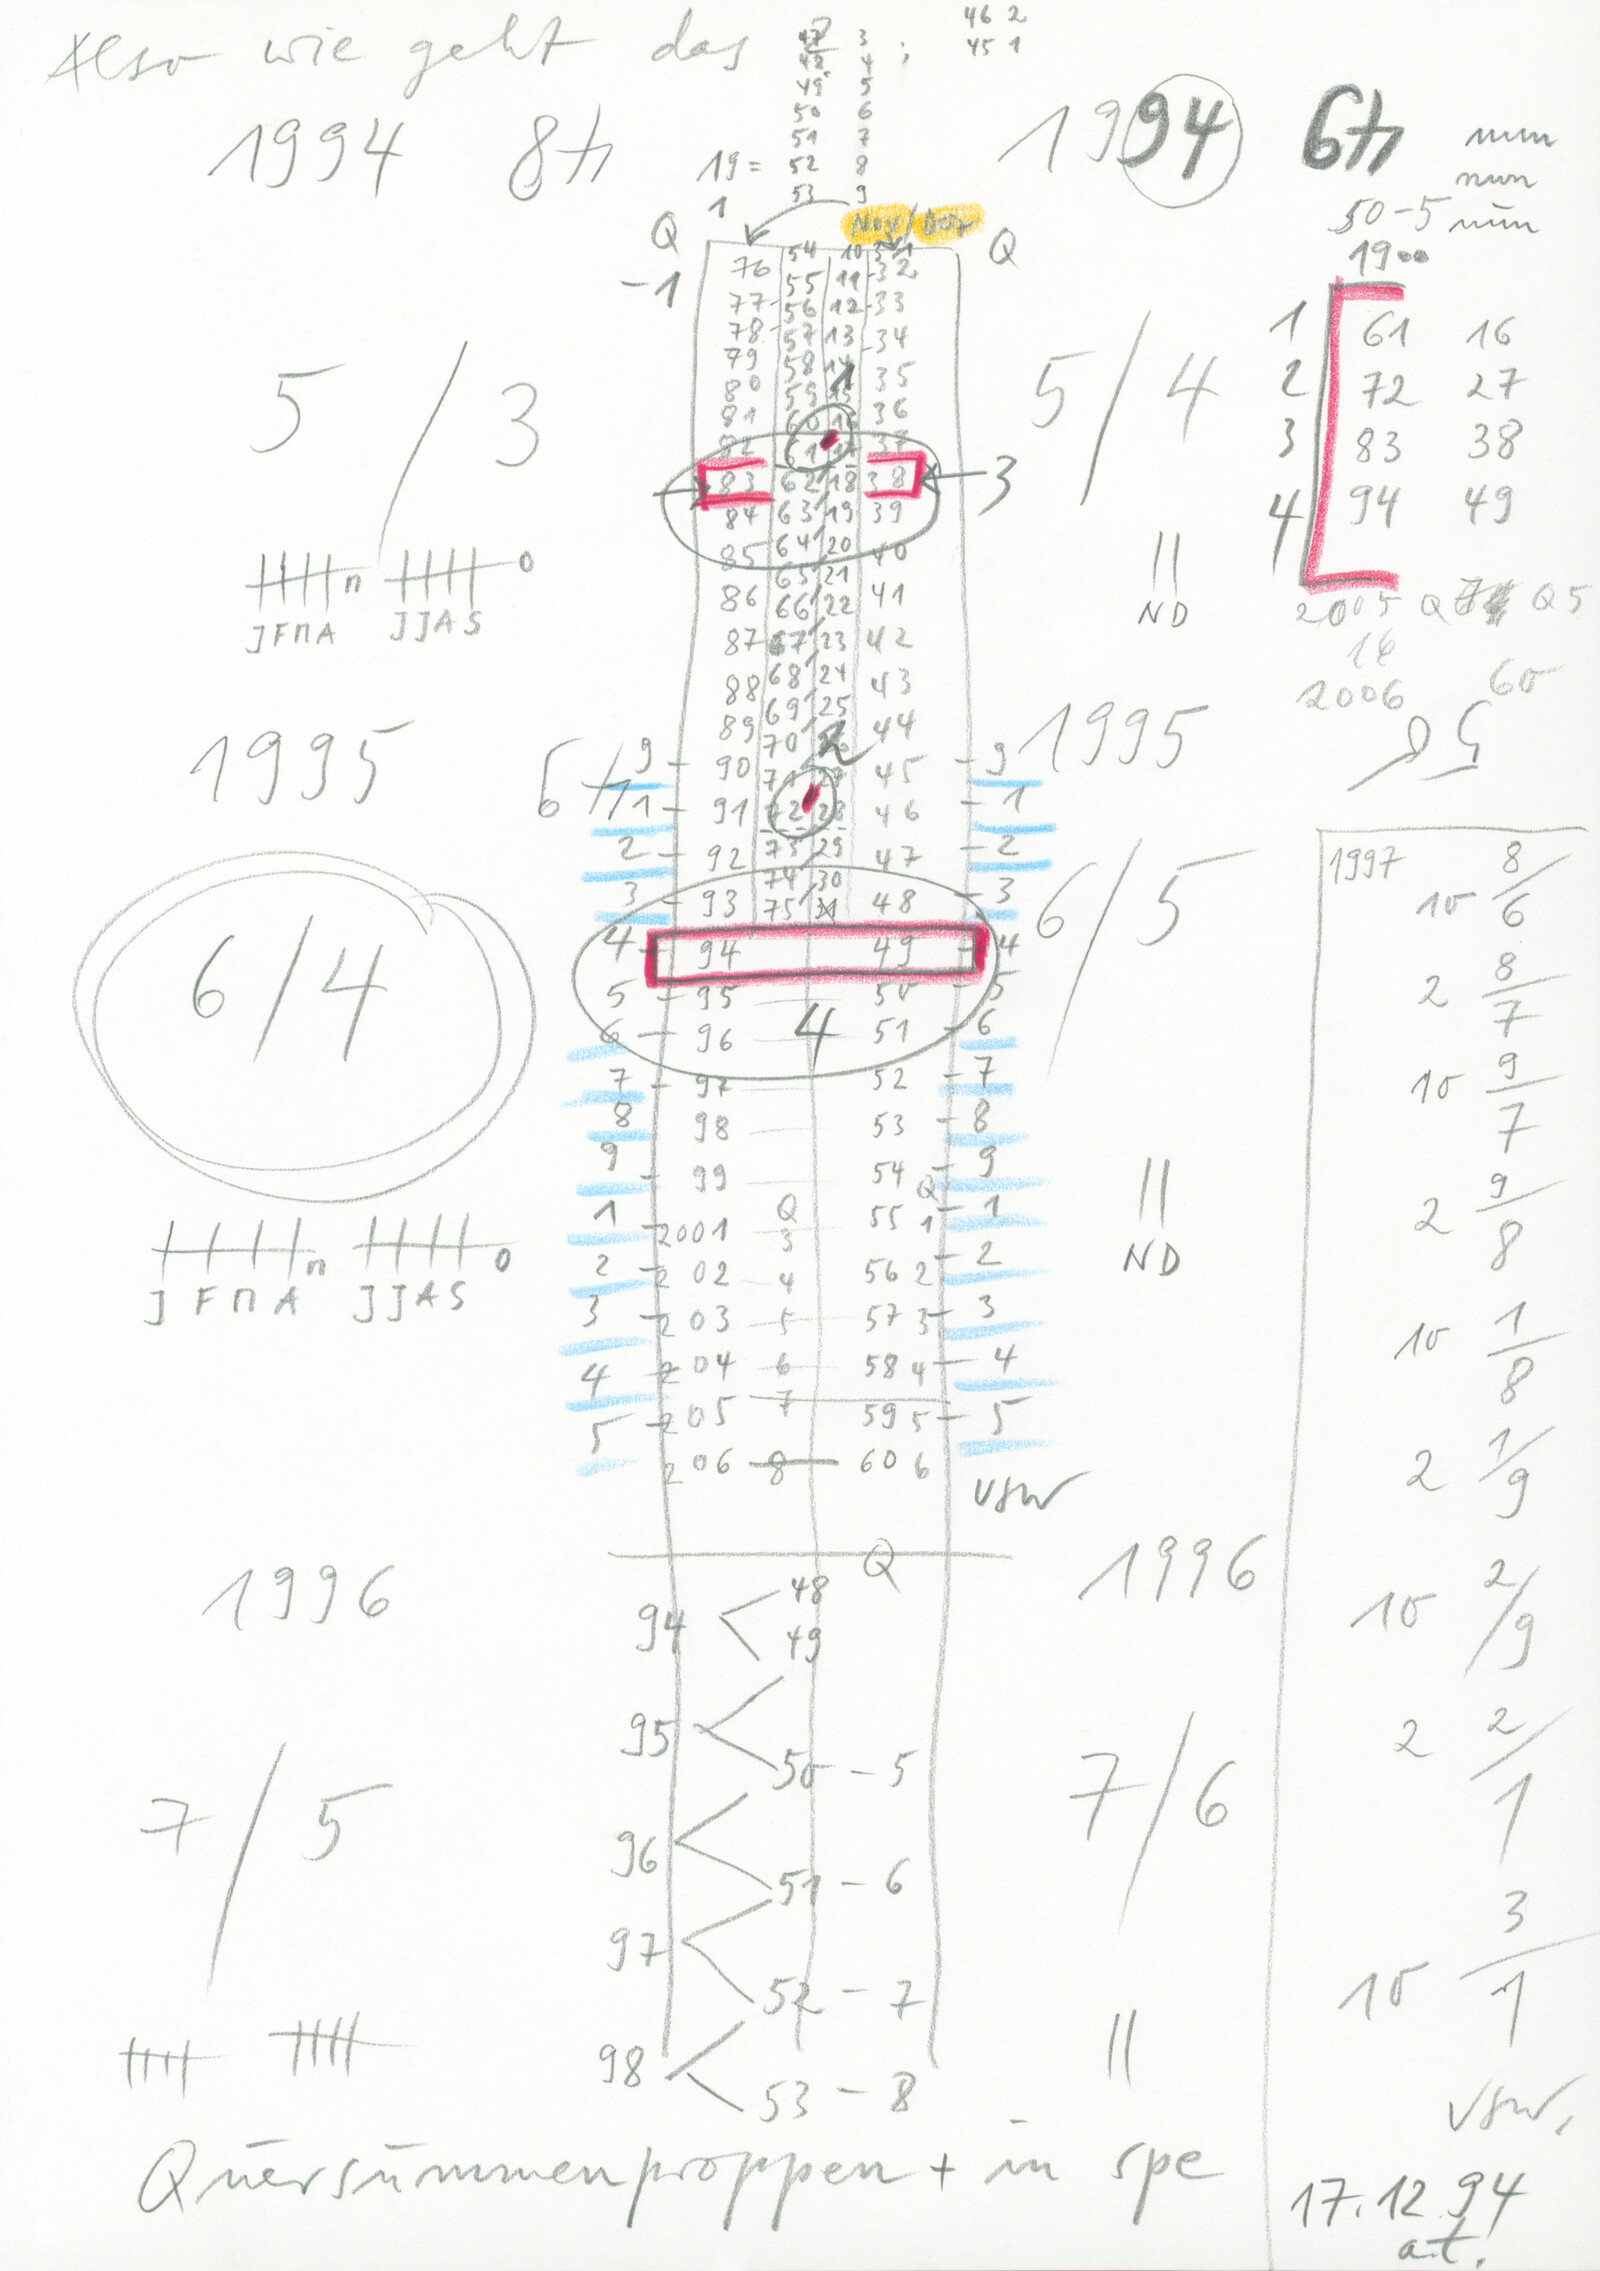 Also wie geht das ;
46 2
45 1
47 3
48 4
49 5
50 6
51 7
19= 52 8
1 53 9
1994 8
1994 6
nun
nun
50-5 nun
1900
Q Nov/Dez Q
-1
76 54 10 31
77 55 11 32
78 56 12 33
79 57 13 34
80 58 14 35
81 59 15 36
82 60 16 37
61 17
83 62 18 38
84 63 19 39
85 64 20 40
65 21
86 66 22 41
87 67 23 42
88 68 24 43
89 69 25 44
70
9 90 71 27 45 9
1 91 72 28 46 1
2 92 73 29 47 2
74 30
3 93 75 48 3
4 94 49 4
5 95 50 5
6 96 4 51 6
7 97 52 7
8 98 53 8
9 99 54 9
Q Q
1 2001 3 55 1 1
2 202 4 56 2 2
3 203 5 57 3 3
4 204 6 58 4 4
5 205 7 59 5 5
206 8 60 6
usw
1
2
3
5/3
5/4
1 61 16
2 72 27
3 83 38
4 94 49
2005 Q Q5
16
2006 60
n o
JFMA JJAS
ND
1995
6
1995
6/4
6/5
n o
J F M A JJAS
ND
1996
1996
Q
94 48
49
95
50 - 5
96
51 - 6
97
52 - 7
98
53 - 8
7/5
7/6
1997
10 8/6
2 8/7
10 9/7
2 9/8
10 1/8
2 1/9
10 2/9
2 2/1
10 3/1
usw.
Quersummenproppen + in spe
17.12.94
a.t.